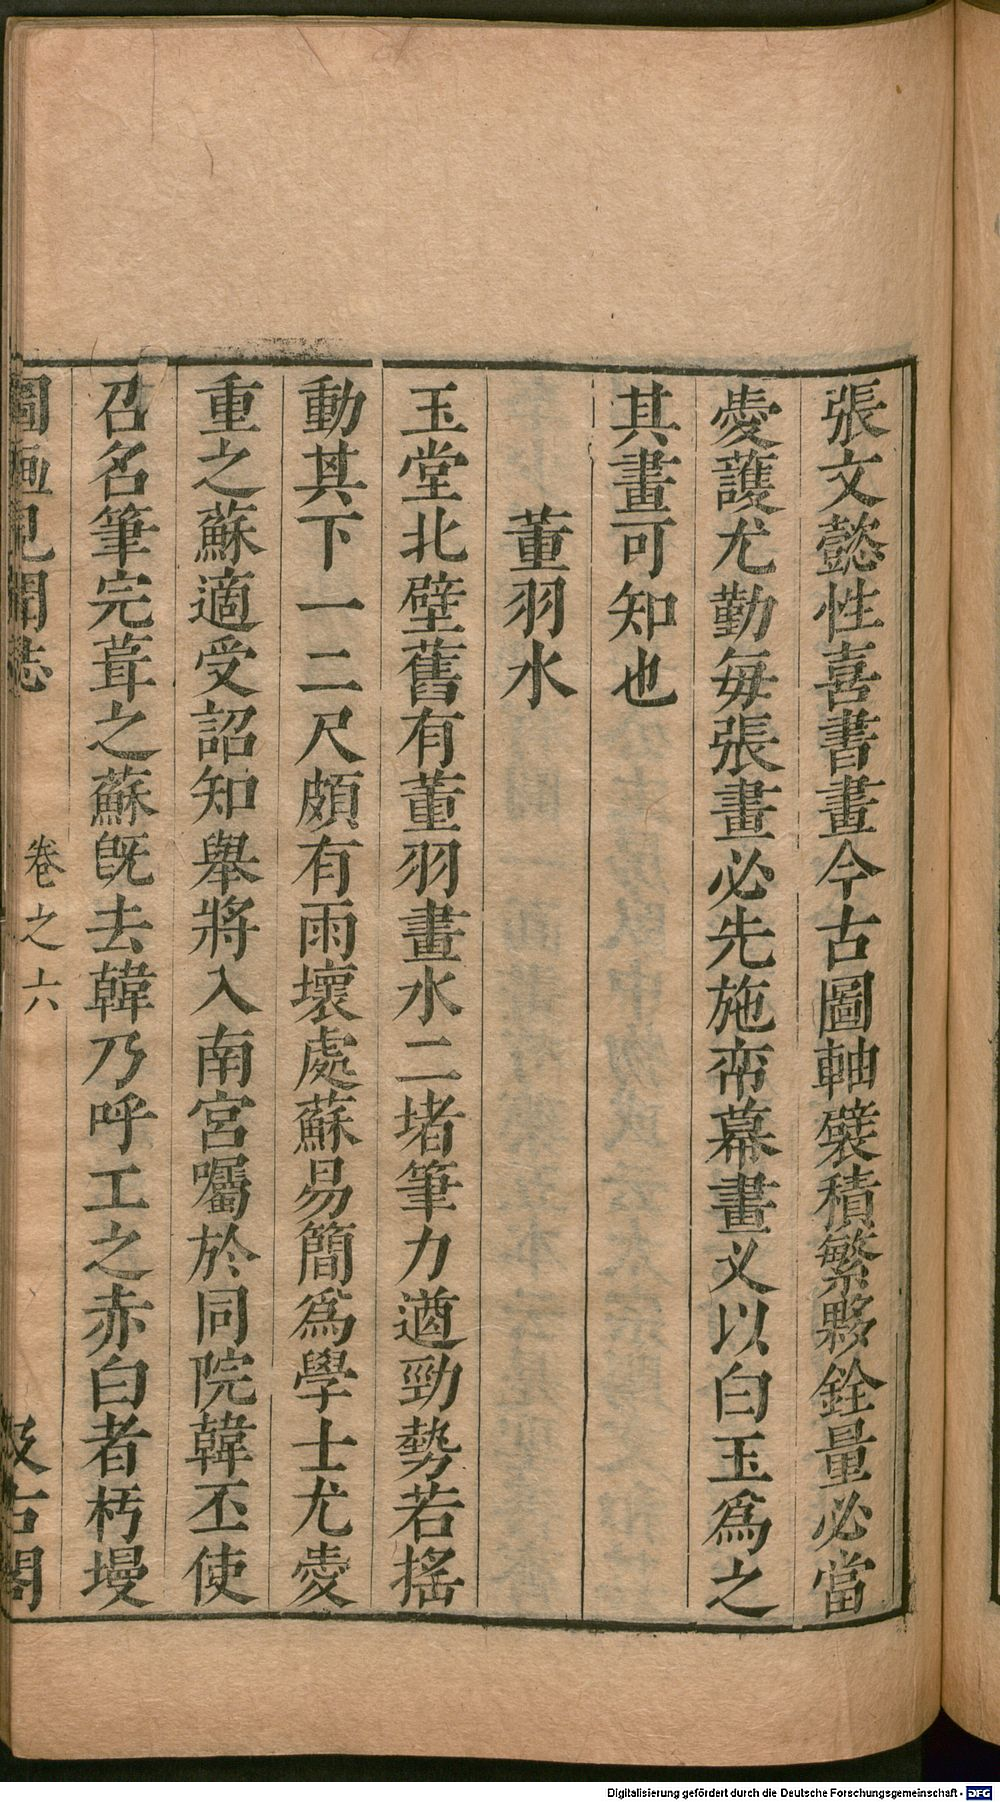 張文懿性喜書畫今古圖軸襞積繁夥銓量必當
愛護尤勤每張畫必先施帟幕畫义以白玉爲之
其畫可知也
董羽水
玉堂北壁舊有董羽畫水二堵筆力遒勁勢若搖
動其下一二尺頗有雨壞處蘇易簡爲學士尤愛
重之蘇適受詔知舉將入南宮囑於同院韓丕使
召名筆完葺之蘇旣去韓乃呼工之赤白者杇墁
圖畫見聞誌 卷之六 汲古閣
Digitalisierung gefördert durch die Deutsche Forschungsgemeinschaft - DFG